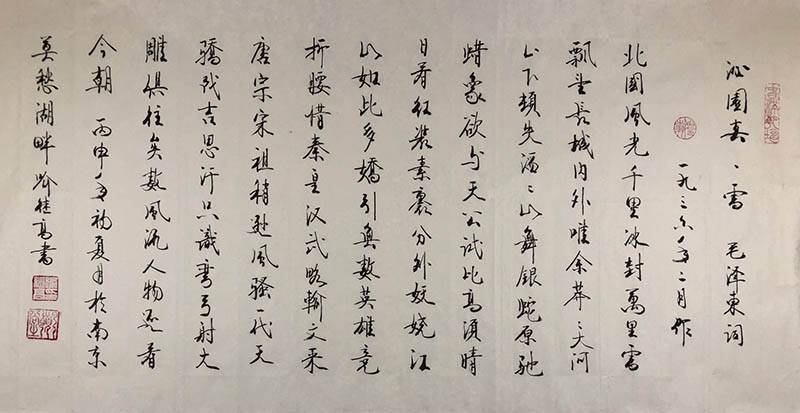 沁園春、雪 毛泽東词
一九三六年二月作
北國風光千里冰封萬里雪
飘望長城内外唯余莽〻大河
上下頓失滔〻山舞银蛇原驰
蜡象欲与天公试比高须晴
日看红装素裹分外妖娆江
山如此多嬌引無数英雄竞
折腰惜秦皇汉武略输文采
唐宗宋祖稍逊風骚一代天
骄成吉思汗只識弯弓射大
雕俱往矣数風流人物还看
今朝 丙申年初夏月於南京
莫愁湖畔 桂高書